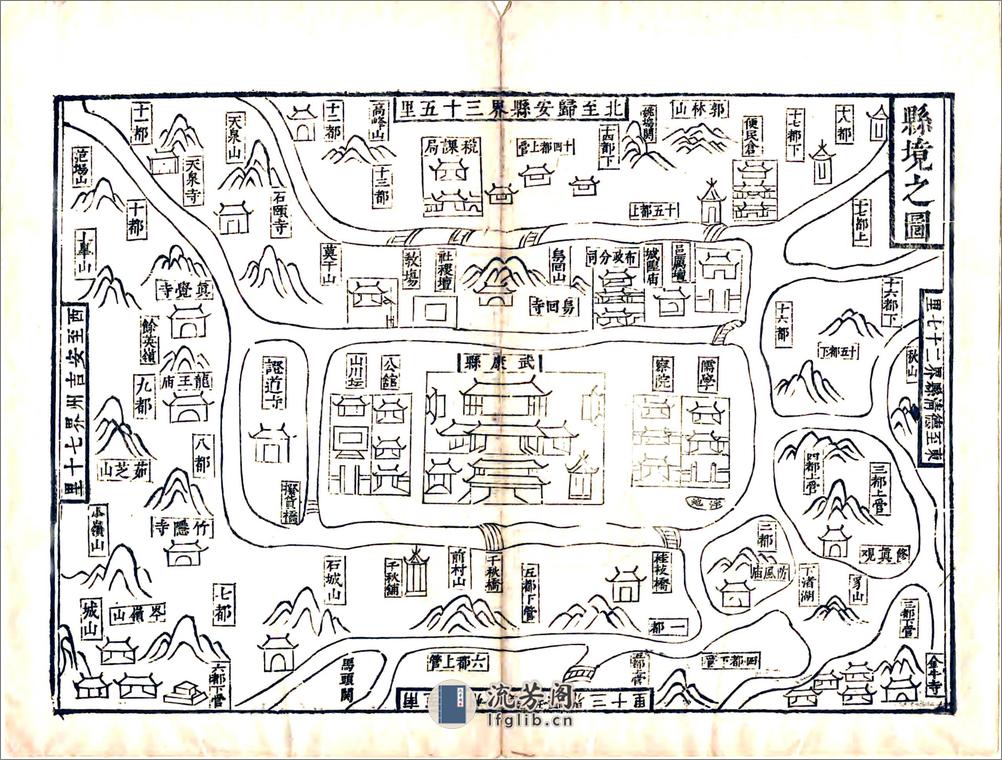 縣境之圖
北至歸安縣界三十五里
東至德清縣界二十七里
西至安吉州界七十里
十八都
十七都下
郭林山
便民倉
十四都下
十四都上管
稅課局
高峰山
十二都
十三都
天泉山
天泉寺
石頤寺
十一都
范場山
十都
十七都上
十五都上
邑厲壇
城隍庙
布政分司
舄回山
舄回寺
社稷壇
教塲
莫干山
真覺寺
餘英嶺
十六都下
十六都
十五都下
秋山
儒學
察院
武康縣
公館
山川坛
證道寺
龍王庙
九都
八都
茹芝山
四都上管
三都上管
修真观
二都
防風庙
下渚湖
三都下管
金牛寺
桂枝橋
千秋橋
前村山
千秋舖
石城山
五都下管
一都
竹隱寺
七都
城山
六都下管
六都上管
馬頭關
四都下管
流芳阁
lfglib.cn